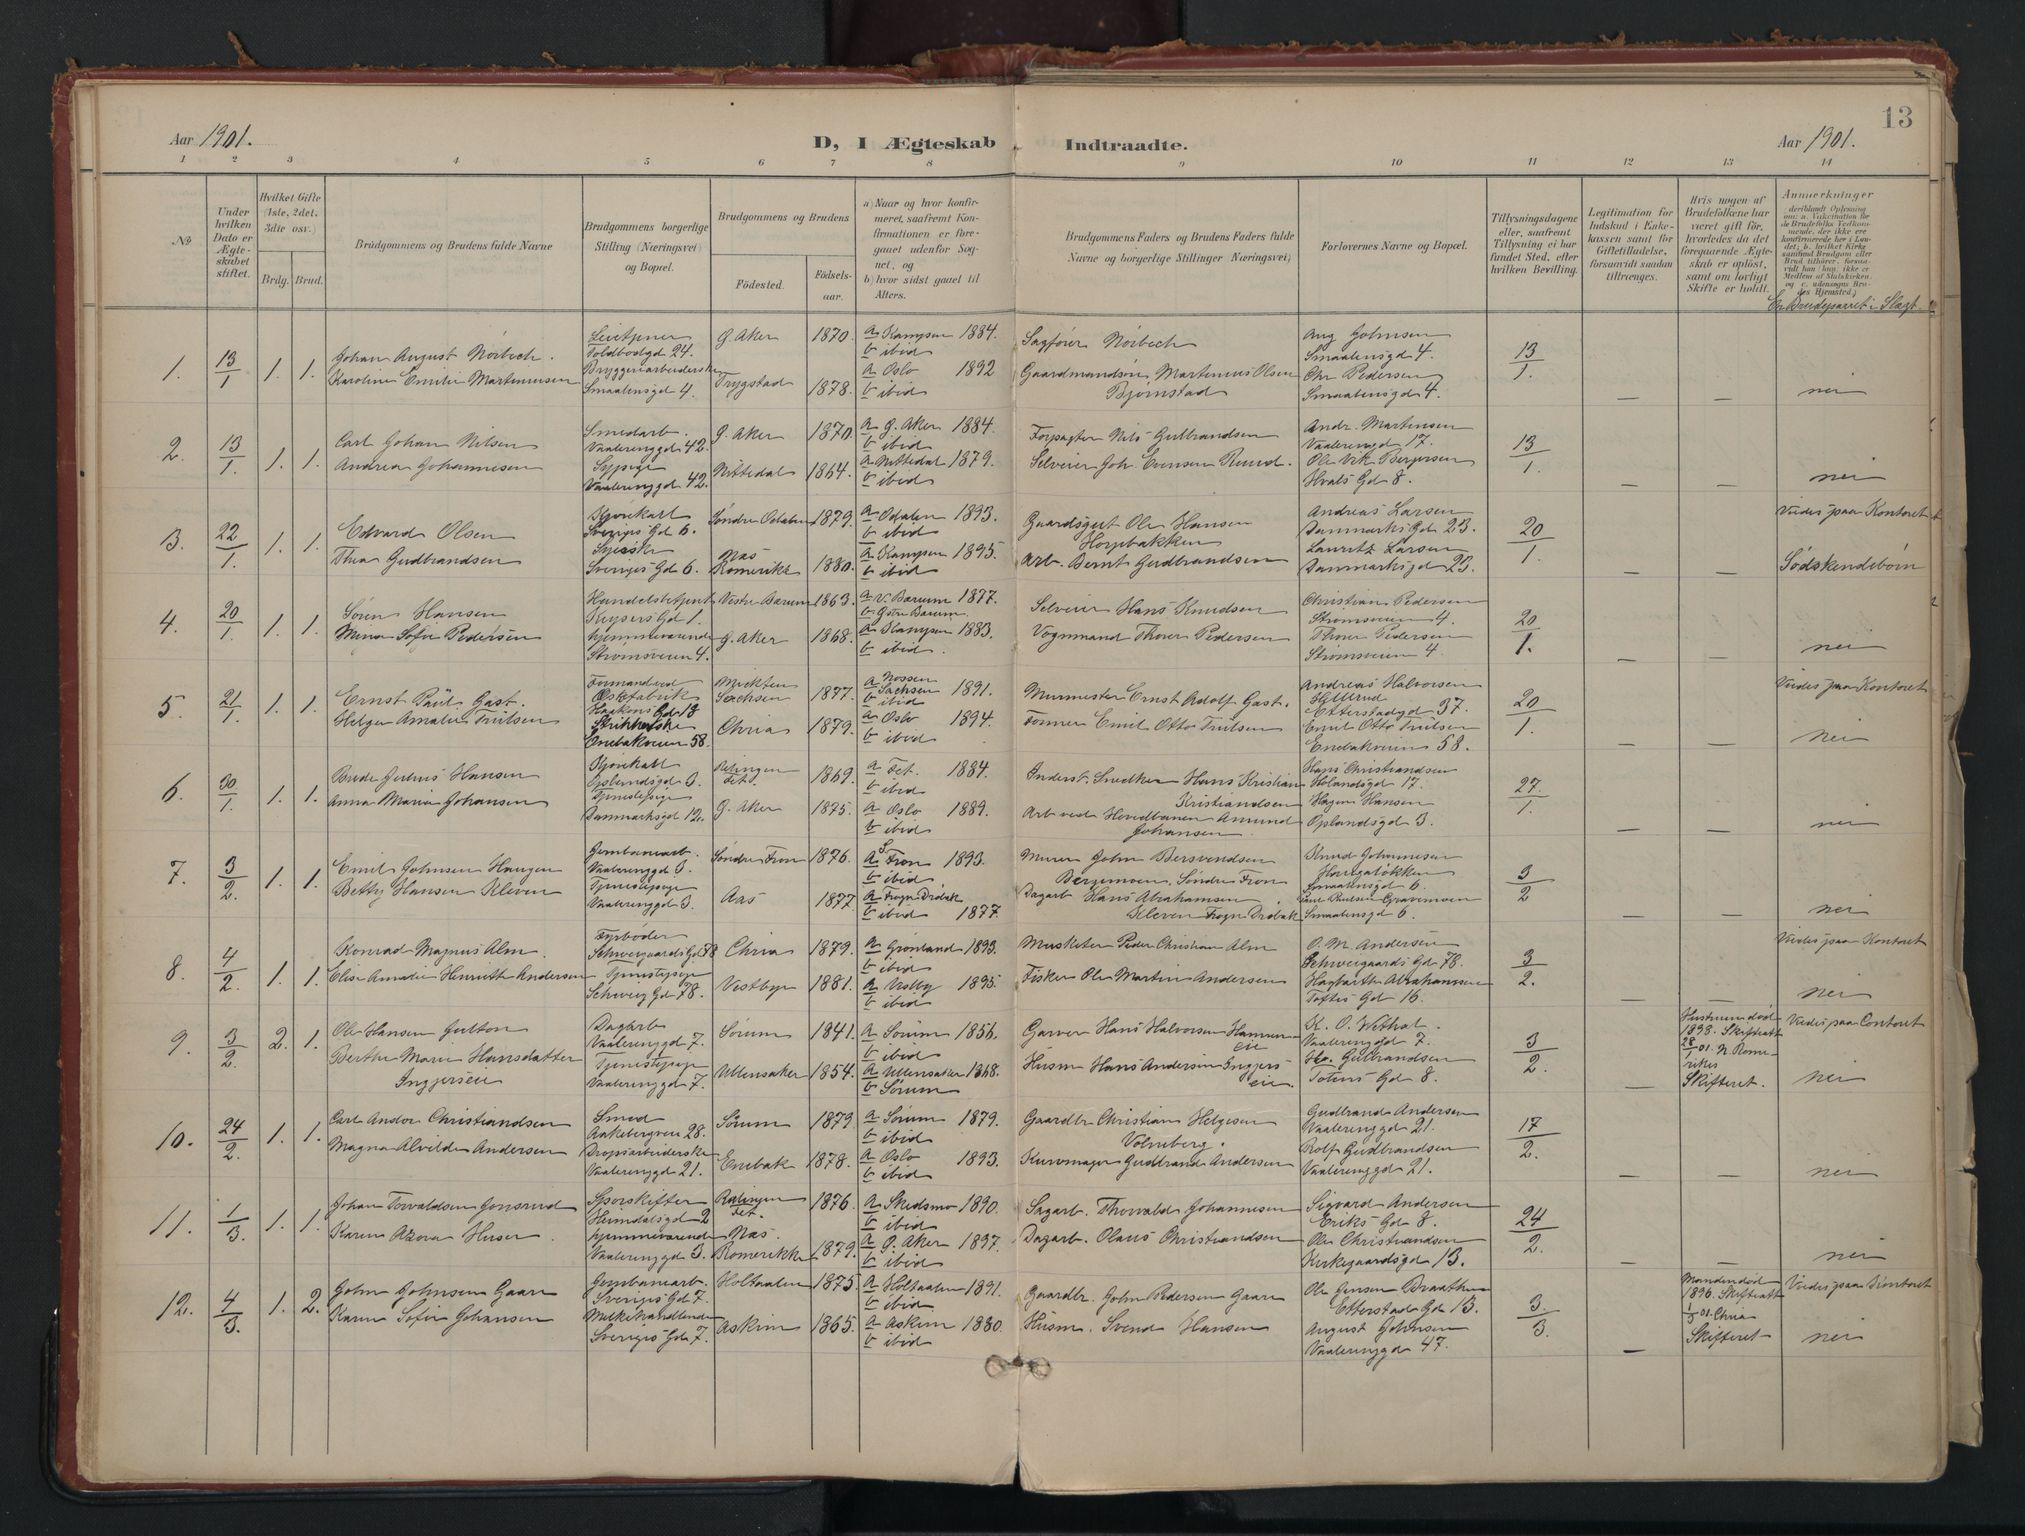 13
Aar 1901.
D, I Ægteskab Indtraadte.
Aar 1901.
1 2 3 4 5 6 7 8 9 10 11 12 13 14
№
Under hvilken Dato er Ægteskabet stiftet.
Hvilket Gifte (1ste, 2det, 3die osv.)
Brdg. Brud.
Brudgommens og Brudens fulde Navne
Brudgommens borgerlige Stilling (Næringsvei) og Bopæl.
Brudgommens og Brudens
Fødested.
Fødselsaar.
a) Naar og hvor konfirmeret, saafremt Konfirmationen er foregaaet udenfor Sognet, og
b) hvor sidst gaaet til Alters.
Brudgommens Faders og Brudens Faders fulde Navne og borgerlige Stillinger Næringsvei)
Forlovernes Navne og Bopæl.
Tillysningsdagene eller, saafremt Tillysning ei har fundet Sted, efter hvilken Bevilling.
Legitimation for Indskud i Enkekassen samt for Giftetilladelse, forsaavidt saadan tiltrænges.
Hvis nogen af Brudefolkene har været gift før, hvorledes da det foregaaende Ægteskab er opløst, samt om lovligt Skifte er holdt.
Anmerkninger
Er Brudeparret i Slægt
1. 13/1 1. 1.
Johan August Nörbech.
Karoline Emilie Martinusen
Toldbodgd 24.
Bryggeriarbeiderske
Smaalensgd 4.
Ø. Aker 1870
Trygstad 1878.
a Kampen 1884.
b ibid
a Oslo 1892
b ibid
Sagfører Nörbech
Gaardmandsön Martinius Olsen
Bjørnstad
Aug Johnsen
Smaalensgd 4.
Chr Pedersen
Smaalensgd 4.
13/1.
— —
nei
2. 13/1. 1. 1.
Carl Johan Nilsen
Andrea Johannesen
Smedarb.
Vaalerenggd 42.
Sypige
Vaalerenggd 42.
Ø. Aker 1870.
Nittedal 1864.
a Ø. Aker 1884.
b ibid
a Nittedal 1879.
b ibid
Forpagter Nils Gulbrandsen
Selveier Joh. Evensen Rund.
Andr. Martinsen
Vaalerenggd 17.
Ole Vik Bergersen
Hvals Gd 8.
13/1.
— —
nei
3. 22/1. 1. 1.
Edvard Olsen
Thea Gudbrandsen
Kjørekarl
Sveriges Gd 6.
Syerske
Sveriges Gd 6.
Søndre Odalen 1879.
Næs Romerike 1880.
a Odalen 1893.
b ibid
a Kampen 1895.
b ibid
Gaardsgut Ole Hansen
Horpbakken
Arb. Bernt Gudbrandsen
Andreas Larsen
Danmarks Gd 23.
Lauritz Larsen
Danmarks gd 23.
20/1
— —
Viedes paa Kontoret
Södskendebörn
4. 20/1. 1. 1.
Sören Hansen
Mina Sofie Pedersen
Handelsbetjent
Keysers Gd 1.
hjemmeværende
Strömsveien 4.
Vestre Bærum 1863.
Ø. Aker 1868.
a V. Bærum 1877.
b Østre Bærum
a Kampen 1883.
b ibid.
Selveier Hans Knudsen
Vognmand Thorer Pedersen
Christian Pedersen
Strömsveien 4.
Thorer Pedersen
Strömsveien 4.
20/1.
— —
nei
5. 21/1. 1. 1.
Ernst Paul Gast.
Helga Amalie Trulsen
Formand ved
Æskefabrik
Haakons Gd 13
Strikkerske
Enebakveien 58.
Sachsen 1877.
Chria 1879.
a Nossen Sachsen 1891.
b ibid
a Oslo 1894.
b ibid
Murmester Ernst Adolf Gast.
Former Emil Otto Trulsen
Andreas Halvorsen
Hellerud
Etterstadgd 37.
Emil Otto Trulsen
Enebakveien 58.
20/1.
— —
Viedes paa Kontoret
nei
6. 30/1. 1. 1.
Brede Julius Hansen
Anna Maria Johansen
Kjørekarl
Oplandsgd 3.
Tjenestepige
Danmarksgd 12.
Rælingen Fet. 1869
Ø. Aker 1875.
a Fet. 1884.
b ibid
a Oslo 1889.
b ibid
Inderst. Snedker Hans Kristian
Kristiandsen
Arb ved Hovedbanen Amund
Johansen
Hans Christiandsen
Hølandsgd 17.
Hagen Hansen
Oplandsgd 3.
27/1.
— —
nei
7. 3/2. 1. 1.
Emil Johnsen Haugen
Betty Hansen Kleven
Jernbanearb.
Vaalerenggd 3.
Tjenestepige
Vaalerenggd 3.
Søndre Fron 1876.
Aas 1877
a S. Fron 1893.
b ibid
a Frogn Drøbak
b ibid 1877.
Murer John Bersvendsen
Bergemoen. Søndre Fron
Dagarb Hans Abrahamsen
Kleven Frogn Drøbak
Knud Johannesen
Haugaløkken
Smaalensgd 6.
Paul Paulsen Gravemoen
Smaalensgd 6.
3/2
— —
nei
8. 4/2. 1. 1.
Konrad Magnus Alm.
Elise Amalie Henriette Andersen
Fyrböder
Schweigaards Gd 78
Tjenestepige
Schweig Gd 78.
Chria 1879.
Vestby 1881.
a Grønland 1893.
b ibid
a Vestby 1895.
b ibid
Musketer Peder Christian Alm
Fisker Ole Martin Andersen
O. M. Andersen
Schweigaards Gd 78.
Hagbarth Abrahamsen
Toftes Gd 16.
3/2.
— —
Viedes paa Kontoret
nei
9. 3/2. 2. 1.
Ole Hansen Gulton
Berthe Marie Hansdatter
Ingjerseie
Dagarb
Vaalerenggd 7.
Tjenestepige
Vaalerenggd 7.
Sørum 1841.
Ullensaker 1854.
a Sørum 1856.
b ibid
a Ullensaker 1868.
b Sørum
Garver Hans Halvorsen
Husm Hans Andersen Ingjers
eie.
K. O. Wethal.
Vaalerenggd 7.
Ha. Gulbrandsen
Totens Gd 8.
3/2.
—
Hustruen död
1898. Skifteatt
28/1 01. N. Romerikes
Skifteret.
Viedes paa Contoret
nei
10. 24/2. 1. 1.
Carl Andor Christiandsen
Magna Alvilde Andersen
Smed
Aakebergveien 28.
Dropsarbeiderske
Vaalerenggd 21.
Sørum 1879
Enebak 1878.
a Sørum 1879.
b ibid
a Oslo 1893.
b ibid
Gaardbr Christian Helgesen
Volneberg.
Kurvmager Gudbrand Andersen
Gudbrand Andersen
Vaalerenggd 21.
Rolf Gudbrandsen
Vaalerenggd 21.
17/2.
— —
nei
11. 1/3. 1. 1.
Johan Torvaldsen Jonsrud
Karen Azora Huser
Sporskifter
Heimdalsgd 2
hjemmeværende
Vaalerenggd 3.
Rælingen Fet. 1876
Næs. Romerikke 1879.
a Skedsmo 1890.
b ibid
a Ø. Aker 1897.
b ibid
Sagarb. Thorvald Johannesen
Dagarb. Olaus Christiandsen
Sigvard Andersen
Eriks Gd 8.
Ole Christiandsen
Kirkegaardsgd 13.
24/2.
— —
nei
12. 4/3. 1. 2.
John Johnsen Gaare
Karen Sofie Johansen
Jernbanearb.
Sveriges Gd 7.
Melkehandlende
Sveriges Gd 7.
Holtaalen 1875.
Askim 1865.
a Holtaalen 1891.
b ibid
a Askim 1880.
b ibid
Gaardbr. John Pedersen Gaare
Husm. Svend Hansen
Ole Jensen Braathen
Etterstad Gd 13.
August Johnsen
Vaalerenggd 47.
3/3.
—
Manden död
1896. Skifteatt
1/3 01. Chria
Skifteret
Viedes paa Kontoret
nei